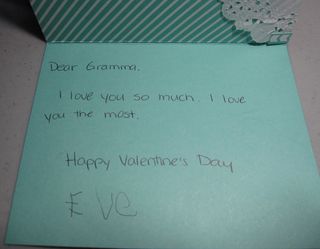 Dear Gramma.
I love you so much. I love
you the most.
Happy Valentine's Day
EVe